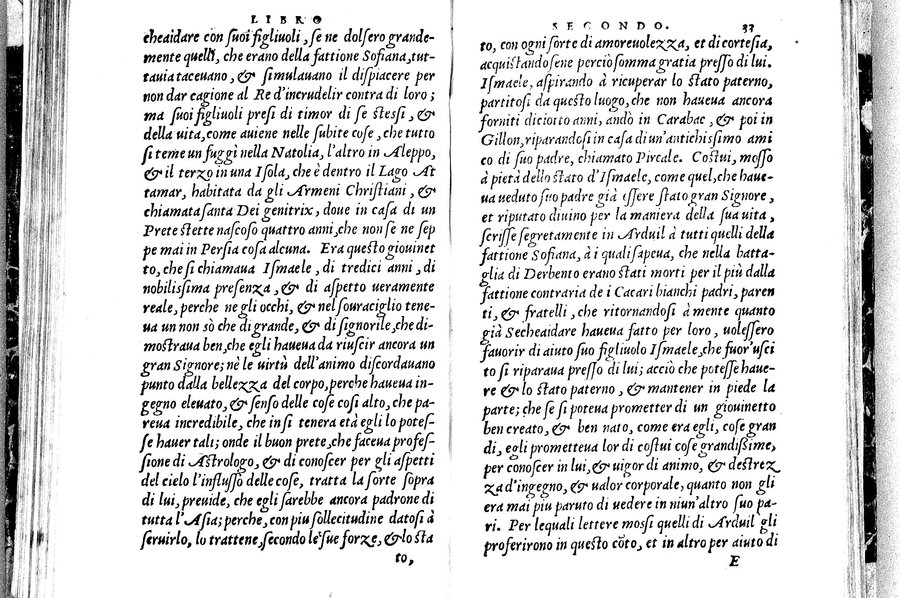 LIBRO
cheaidare con suoi figliuoli, se ne dolsero grande-
mente quelli, che erano della fattione Sofiana, tut-
tauia taceuano, & simulauano il dispiacere per
non dar cagione al Re d'incrudelir contra di loro;
ma suoi figliuoli presi di timor di se stessi, &
della vita, come auiene nelle subite cose, che tutto
si teme un fuggi nella Natolia, l'altro in Aleppo,
& il terzo in una Isola, che è dentro il Lago At
tamar, habitata da gli Armeni Christiani, &
chiamata santa Dei genitrix, doue in casa di un
Prete stette nascoso quattro anni, che non se ne sep
pe mai in Persia cosa alcuna. Era questo giouinet
to, che si chiamaua Ismaele, di tredici anni, di
nobilissima presenza, & di aspetto ueramente
reale, perche ne gli occhi, & nel souraciglio tene-
ua un non sò che di grande, & di signorile, che di-
mostraua ben, che egli haueua da riuscir ancora un
gran Signore; nè le uirtù dell'animo discordauano
punto dalla bellezza del corpo, perche haueua in-
gegno eleuato, & senso delle cose cosi alto, che pa-
reua incredibile, che in si tenera età egli lo potes-
se hauer tali; onde il buon prete, che faceua profes-
sione di Astrologo, & di conoscer per gli aspetti
del cielo l'influsso delle cose, tratta la sorte sopra
di lui, preuide, che egli sarebbe ancora padrone di
tutta l'Asia; perche, con piu sollecitudine datosi à
seruirlo, lo trattene, secondo le sue forze, & lo sta
to,
SECONDO. 33
to, con ogni sorte di amoreuolezza, et di cortesia,
acquistandosene perciò somma gratia presso di lui.
Ismaele, aspirando à ricuperar lo stato paterno,
partitosi da questo luogo, che non haueua ancora
forniti diciotto anni, andò in Carabac, & poi in
Gillon, riparandosi in casa di un'antichissimo ami
co di suo padre, chiamato Pircale. Costui, mosso
à pietà dello stato d'Ismaele, come quel, che haue-
ua ueduto suo padre già essere stato gran Signore,
et riputato diuino per la maniera della sua uita,
scrisse segretamente in Arduil à tutti quelli della
fattione Sofiana, à i quali sapeua, che nella batta-
glia di Derbento erano stati morti per il più dalla
fattione contraria de i Cacari bianchi padri, paren
ti, & fratelli, che ritornandosi à mente quanto
già Secheaidare haueua fatto per loro, uolessero
fauorir di aiuto suo figliuolo Ismaele, che fuor'usci
to si riparaua presso di lui; acciò che potesse haue-
re & lo stato paterno, & mantener in piede la
parte; che se si poteua prometter di un giouinetto
ben creato, & ben nato, come era egli, cose gran
di, egli prometteua lor di costui cose grandissime,
per conoscer in lui, & uigor di animo, & destrez
za d'ingegno, & ualor corporale, quanto non gli
era mai piu paruto di uedere in niun'altro suo pa-
ri. Per lequali lettere mossi quelli di Arduil gli
proferirono in questo cōto, et in altro per aiuto di
E